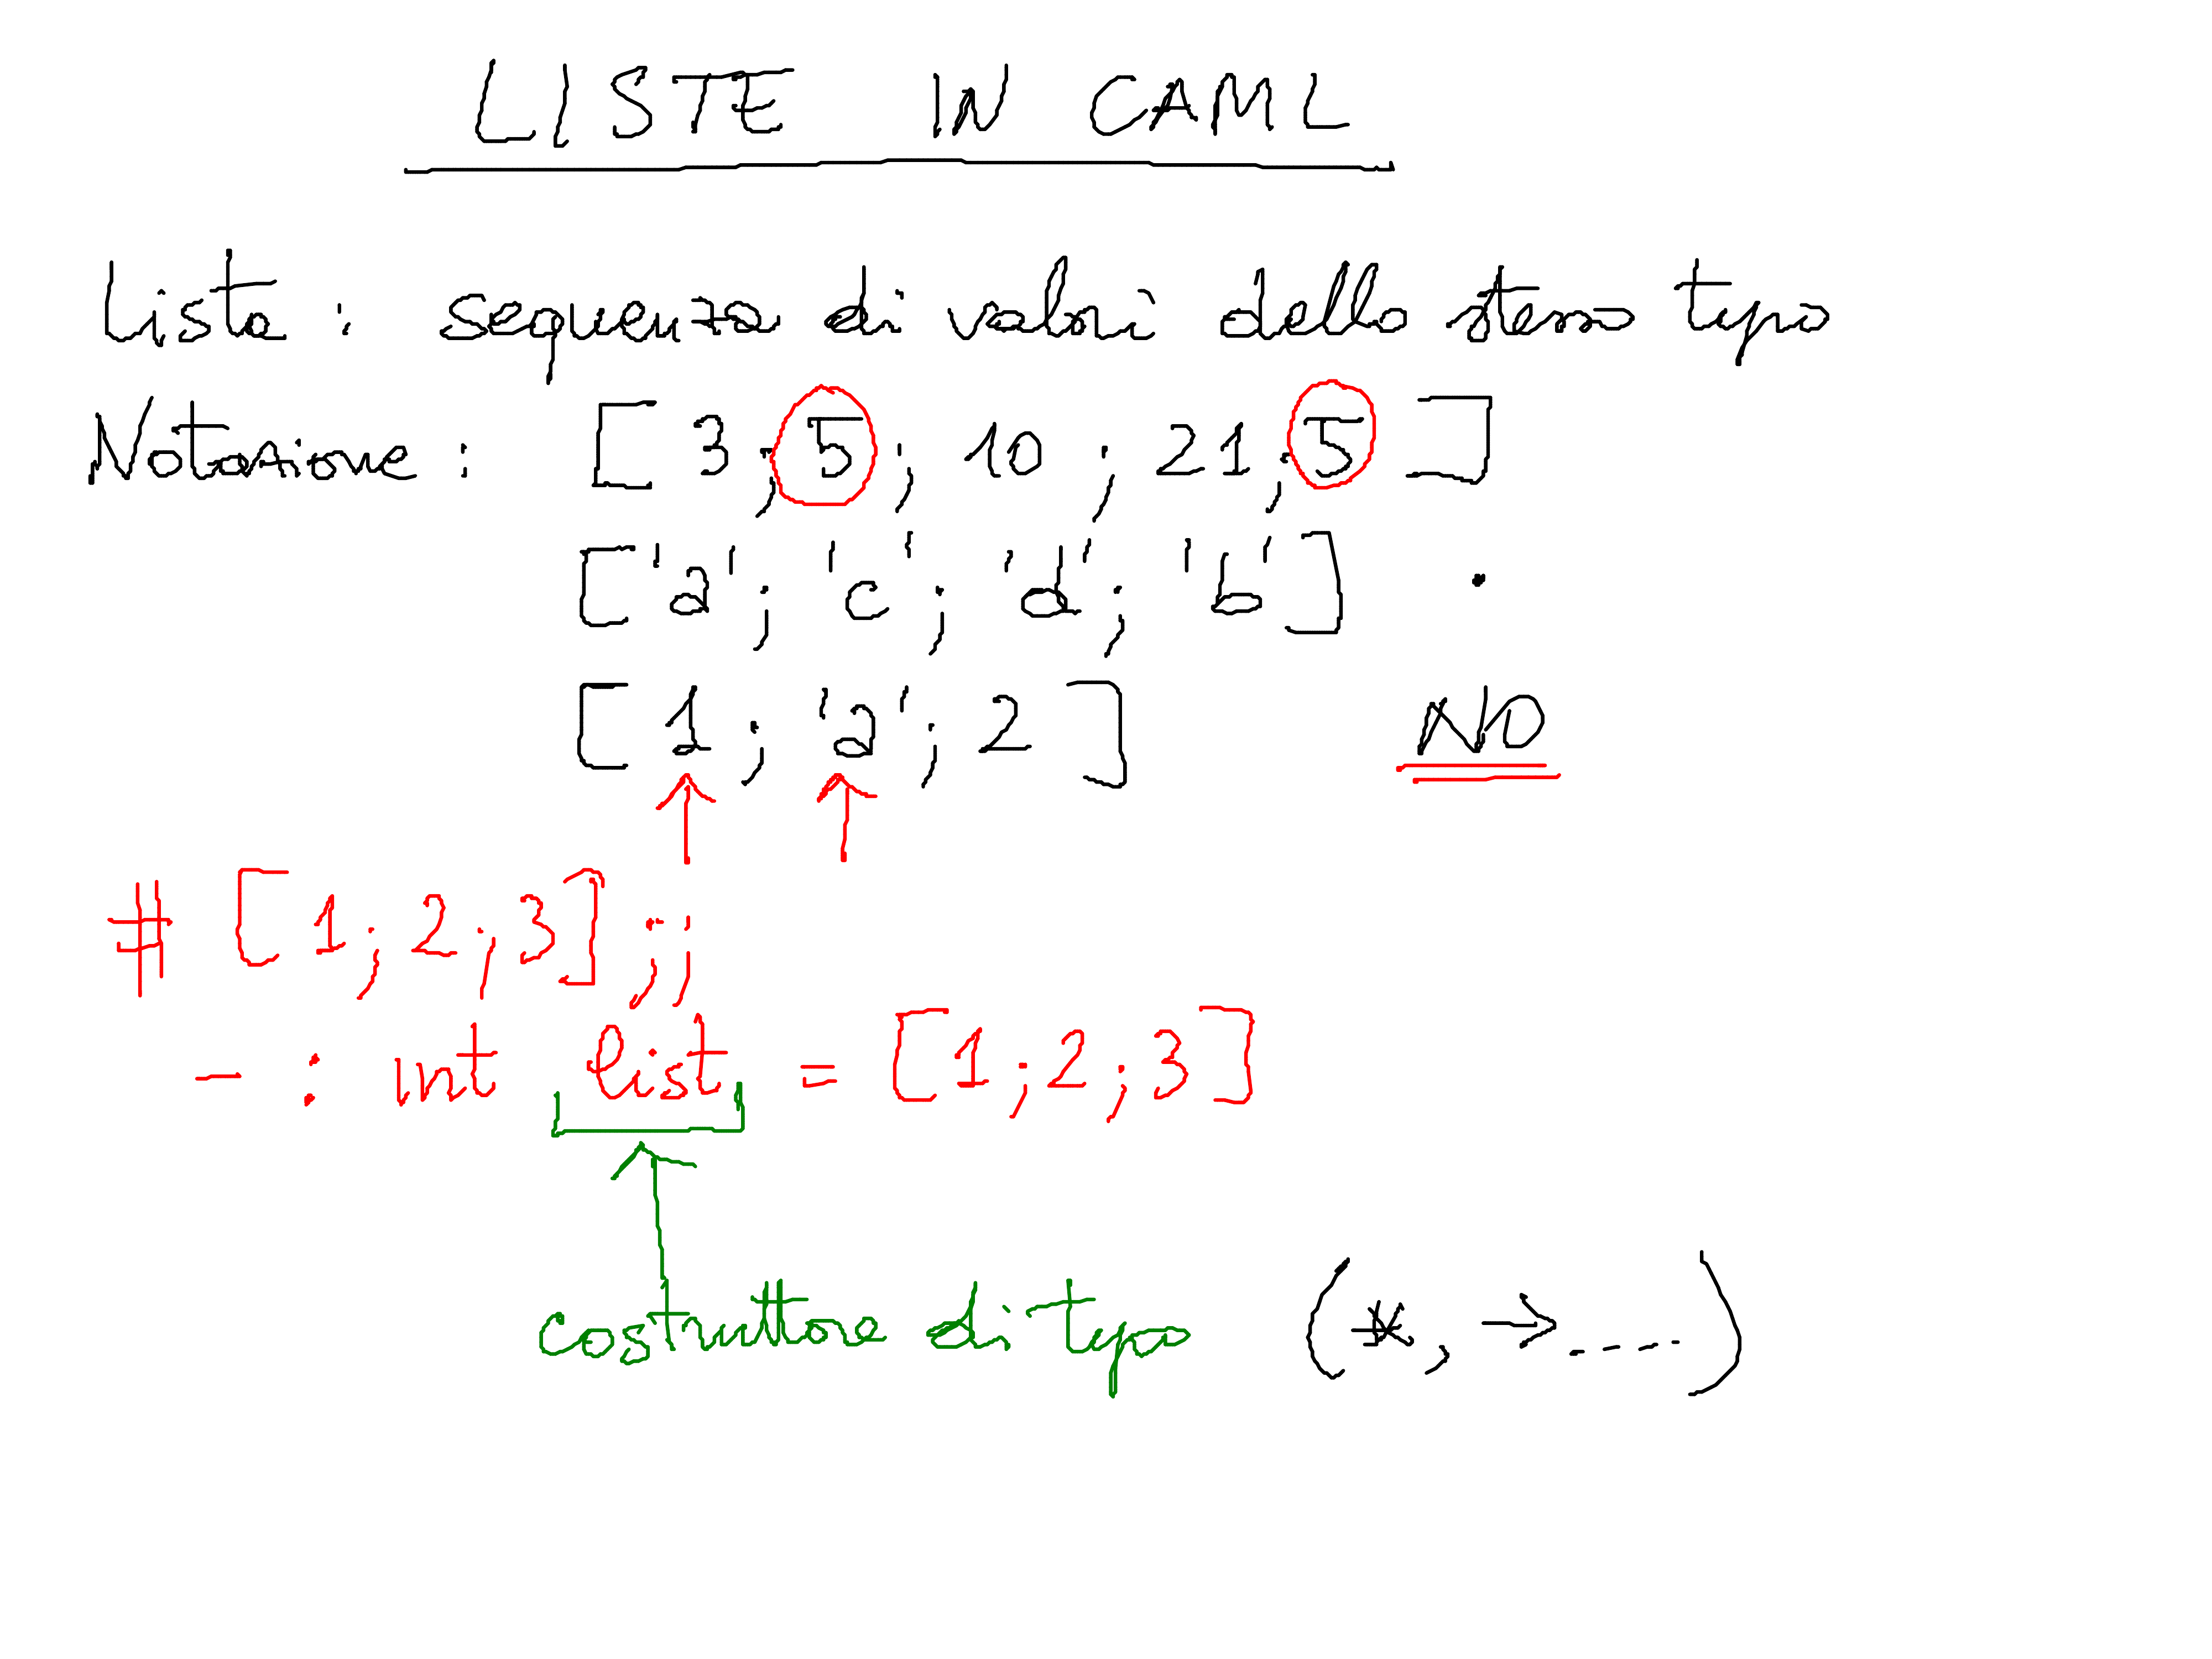 LISTE IN CAML
Lista : sequenza di valori dello stesso tipo
Notazione : [ 3 ; 5 ; 10 ; 21 ; 5 ]
['a' ; 'c' ; 'd' ; 'b']
[ 1 ; 'a' ; 2 ] NO
# [ 1 ; 2 ; 3 ] ;;
- : int list = [ 1 ; 2 ; 3 ]
costruttore di tipo (*, → .....)